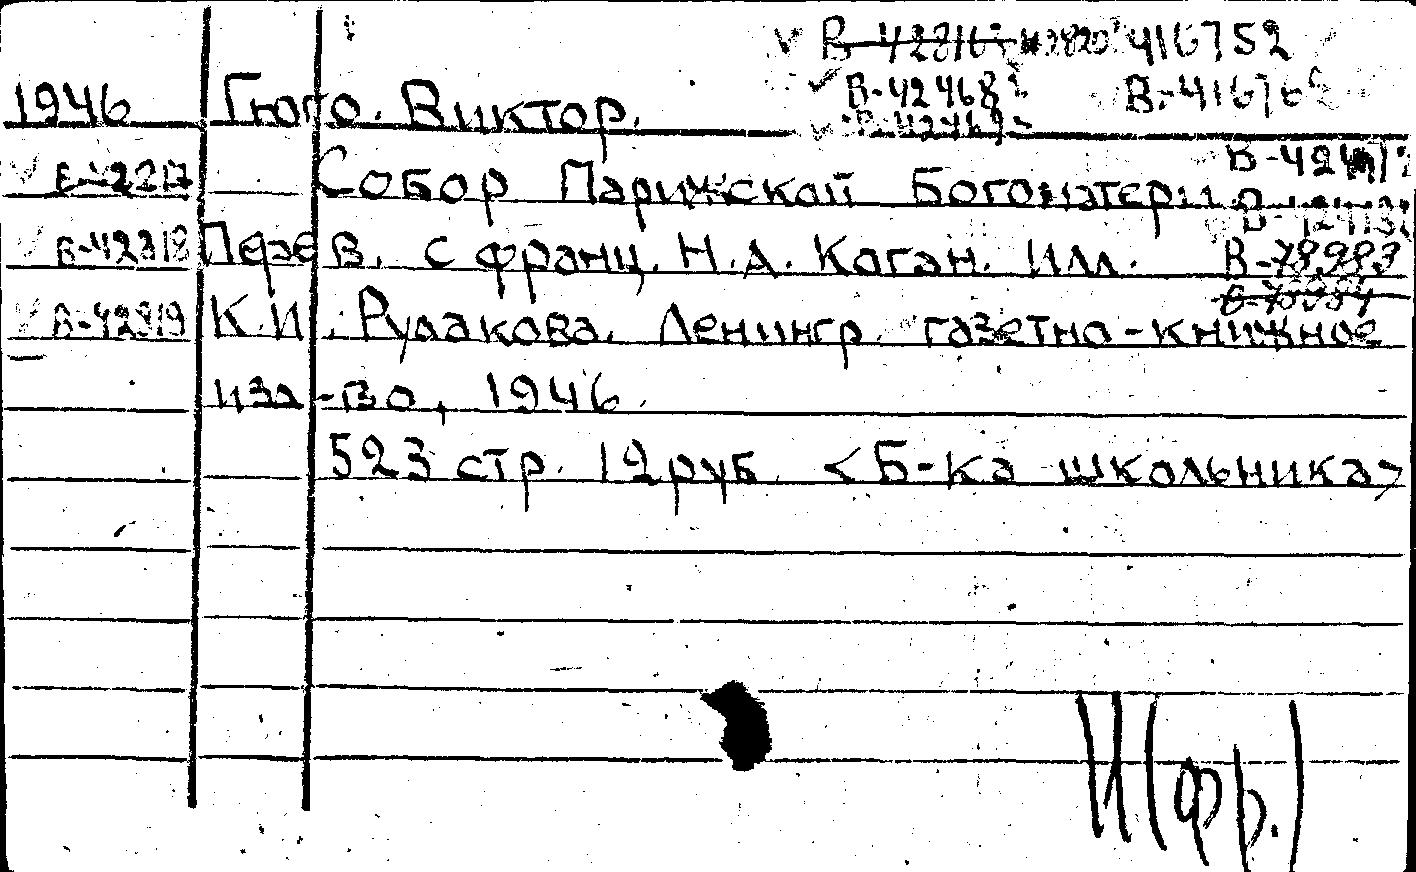 416752
В-42468
1946 Гюго. Виктор.
Собор Парижской Богоматери
В-42318 Перев. с франц. Н.А. Коган. Илл. В-78983
В-42319 К.И. Рудакова. Ленингр. газетно-книжное
изд-во, 1946.
523 стр. 12 руб. <Б-ка школьника>
И(фр.)